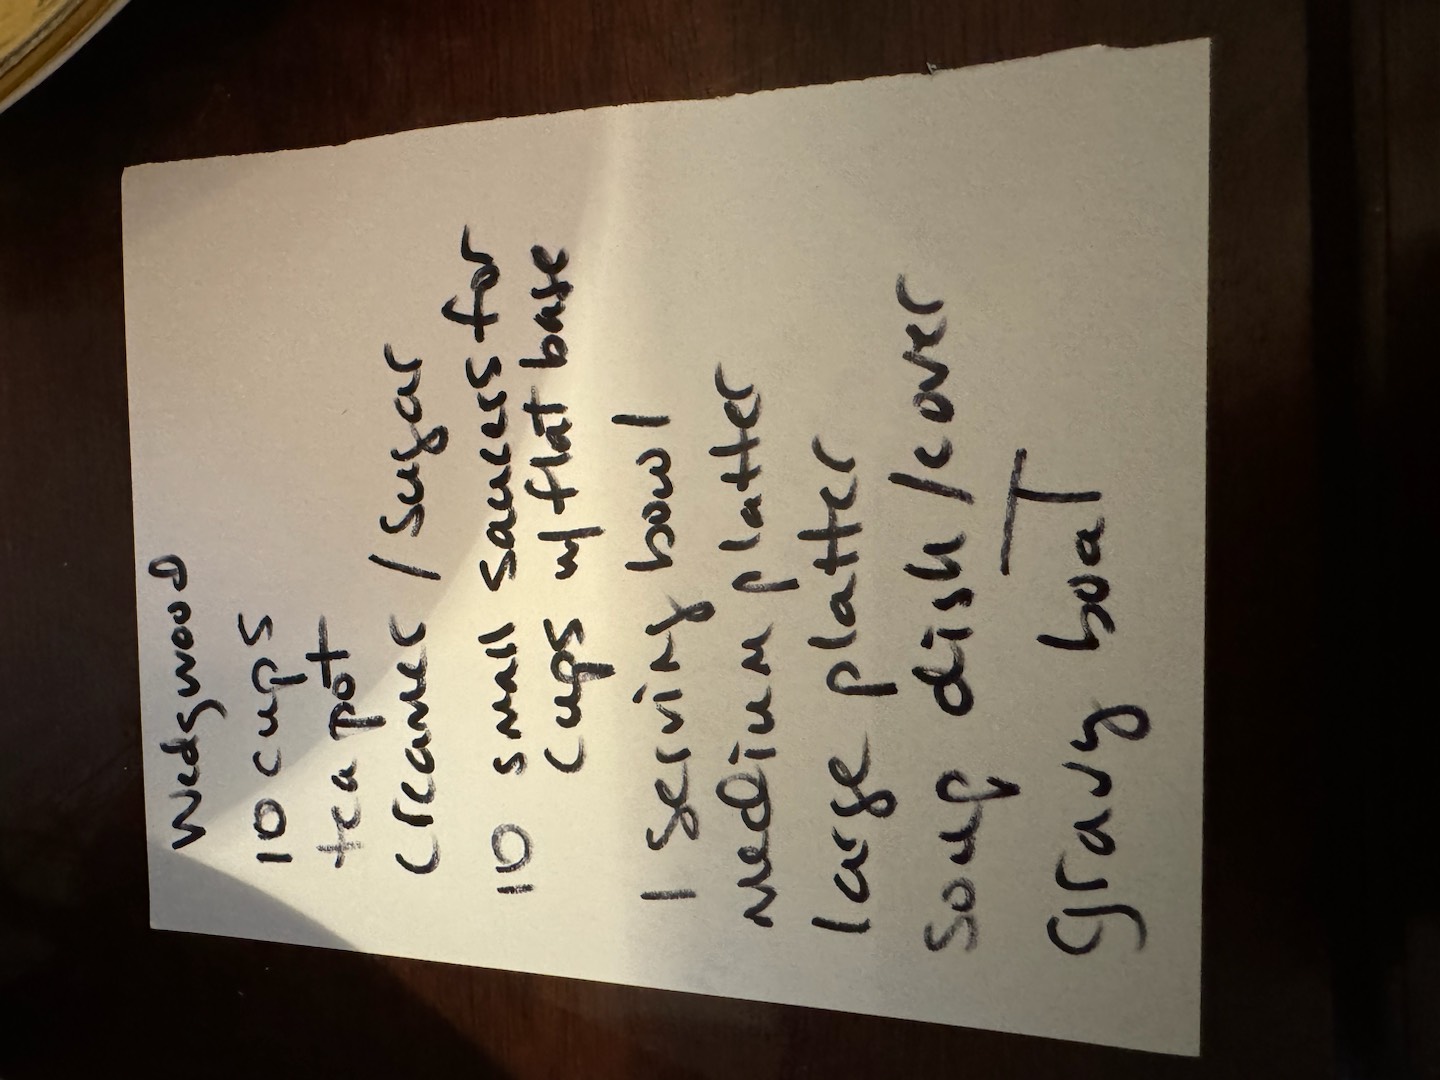 Wedgwood
10 cups
tea pot
Creamer / sugar
10 small saucers for
cups w/ flat base
1 serving bowl
medium platter
large platter
soup dish/cover
gravy boat